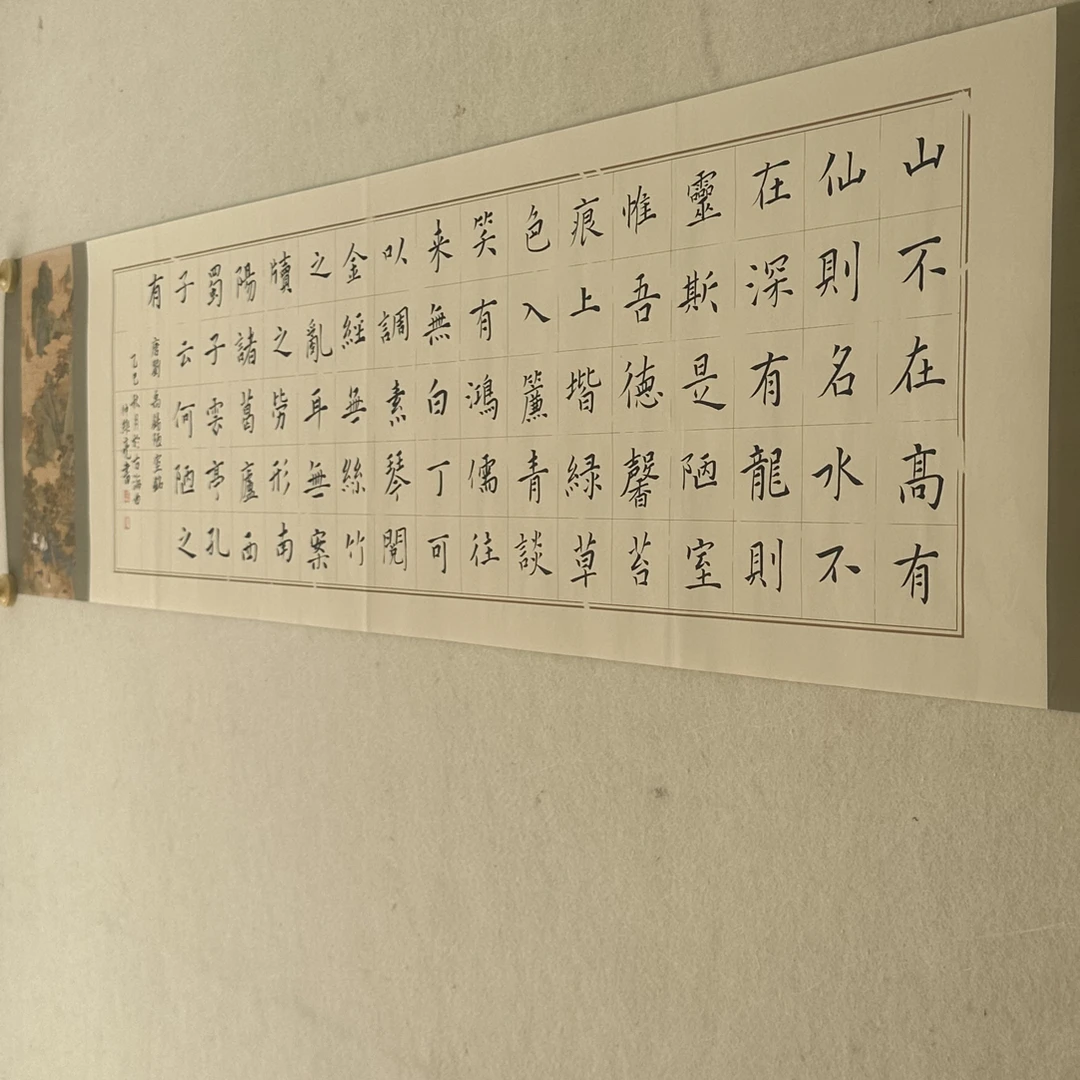 山不在髙有
仙則名水不
在深有龍則
靈斯是陋室
惟吾徳馨苔
痕上堦緑草
色入簾青談
笑有鴻儒往
来無白丁可
以調素琴閲
金經無絲竹
之亂耳無案
牘之勞形南
陽諸葛廬西
蜀子雲亭孔
子云何陋之
有
唐劉禹錫陋室銘
乙巳秋月於古海曲
書